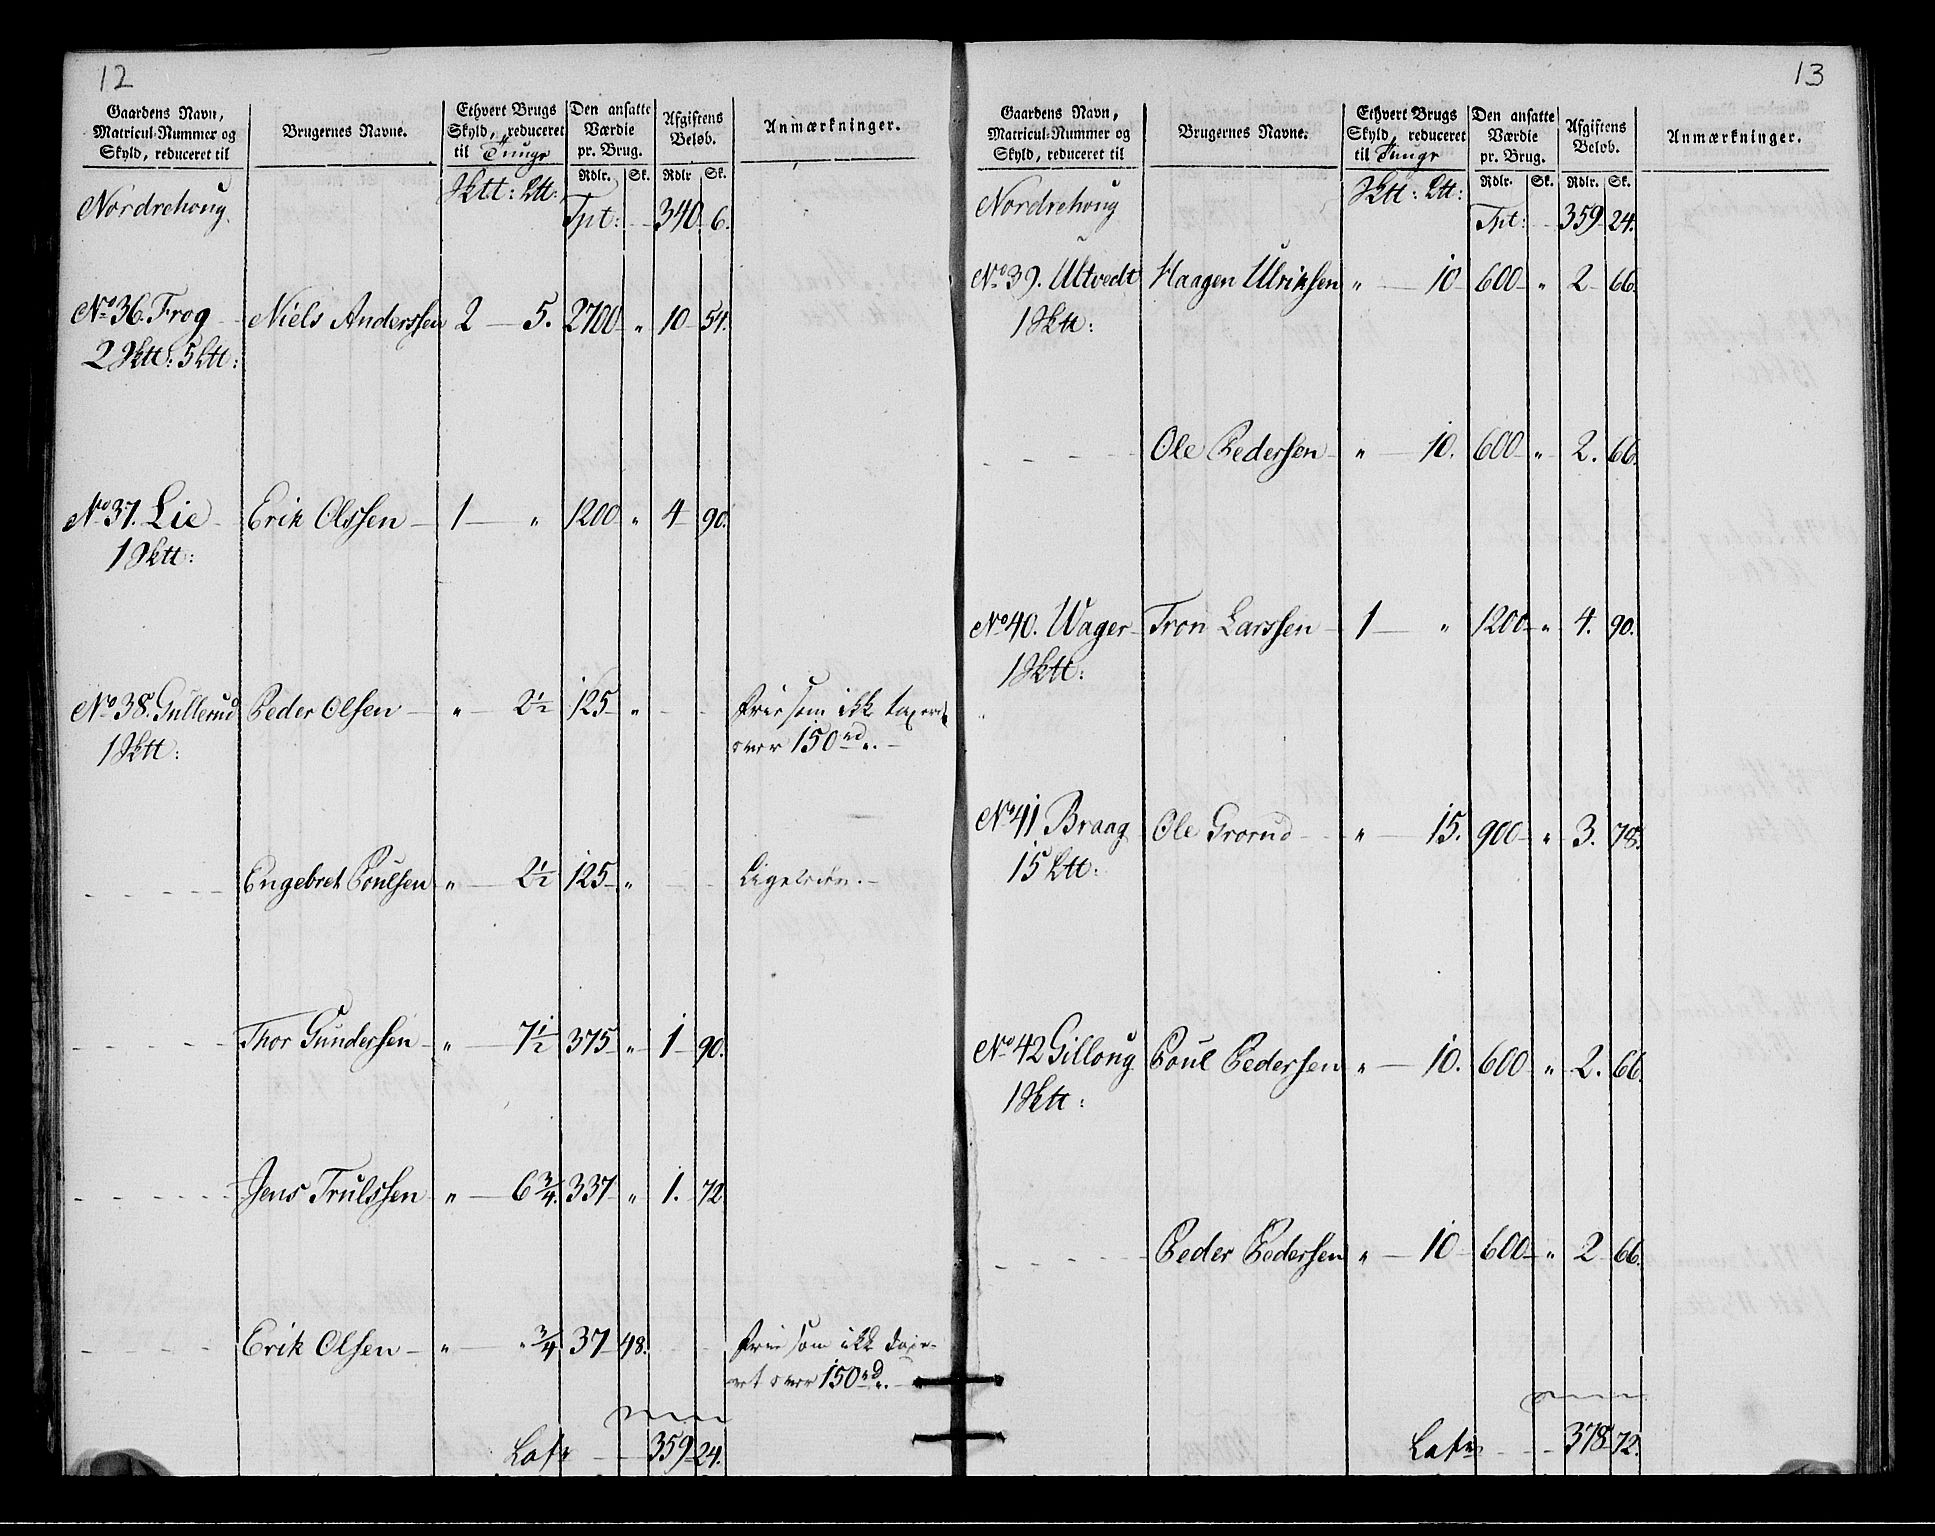 12
Gaardens Navn, Matricul-Nummer og Skyld, reduceret til | Brugernes Navne. | Ethvert Brugs Skyld, reduceret til Tunge | Den ansatte Værdie pr. Brug. | Afgiftens Beløb. | Anmærkninger.
Rdlr. Sk. Rdlr Sk.
Nordrehoug Sktt: Ltt: Tpt: 340 6.
No 36. Frog Niels Anderssen 2 5. 2700 " 10 54.
2 Sktt: 5 Ltt:
No 37. Lie Erik Olssen 1 " 1200 " 4 90.
1 Sktt:
No 38. Gullerud Peder Olsen " 2½ 125 " Frie som ikke taxeret
1 Sktt: over 150 rd.
Engebret Poulsen " 2½ 125 " Ligeledes.
Thor Gundersen " 7½ 375 " 1 90.
Jens Trulssen " 6¾. 337 " 1. 72
Erik Olsen " " ¾ 37 48. Frie som ikke taxe-
ret over 150 rd.
Lats 359 24.
13
Gaardens Navn, Matricul-Nummer og Skyld, reduceret til | Brugernes Navne. | Ethvert Brugs Skyld, reduceret til Tunge | Den ansatte Værdie pr. Brug. | Afgiftens Beløb. | Anmærkninger.
Rdlr. Sk. Rdlr. Sk.
Nordrehoug Sktt: Ltt: Tpt: 359 24.
No 39. Utvedt Haagen Ulriksen " 10 600 " 2 66.
1 Sktt:
Ole Pedersen " 10. 600 " 2. 66.
No 40. Wager Tron Larssen 1 " 1200 " 4. 90.
1 Sktt:
No 41 Braag Ole Grorud " 15. 900 " 3. 78.
15 Ltt:
No 42 Gilloug Poul Pedersen " 10. 600 " 2. 66.
1 Sktt:
Peder Pedersen " 10 600 " 2 66.
Lats 378 72.